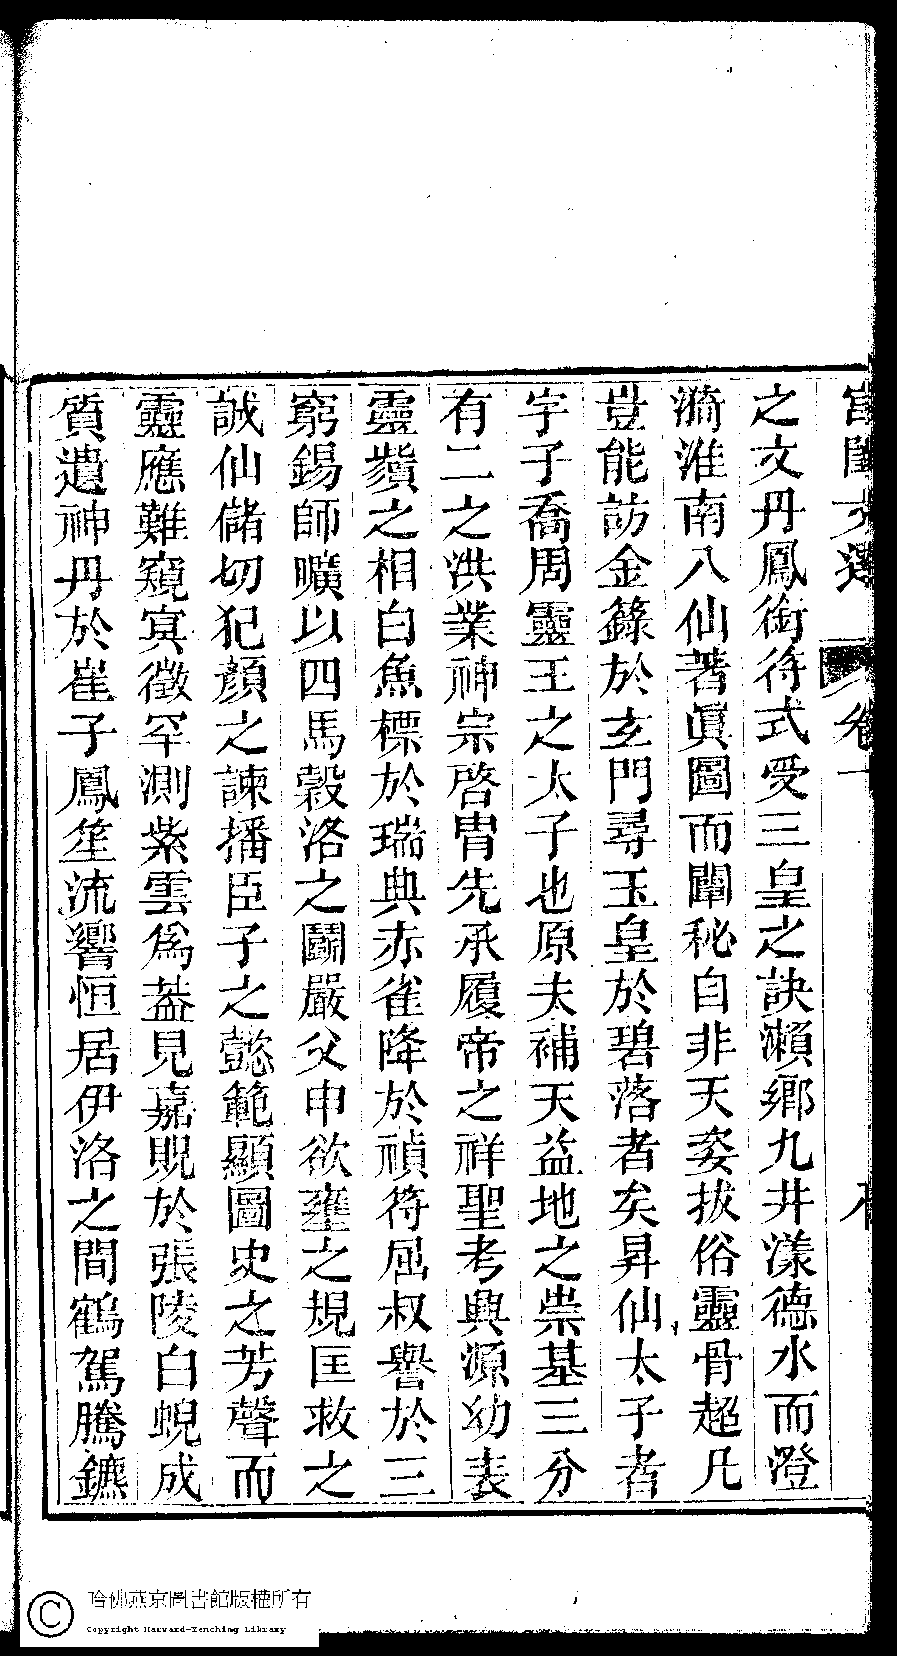 宮閨文選 卷十
之文丹鳳銜符式受三皇之訣瀨鄉九井漾德水而澄
漪淮南八仙著眞圖而闡秘自非天姿拔俗靈骨超凡
豈能訪金籙於玄門尋玉皇於碧落者矣昇仙太子者
字子喬周靈王之太子也原夫補天益地之崇基三分
有二之洪業神宗啓胄先承履帝之祥聖考興源幼表
靈髭之相白魚標於瑞典赤雀降於禎符屈叔譽於三
窮錫師曠以四馬榖洛之鬭嚴父申欲壅之規匡救之
誠仙儲切犯顏之諫播臣子之懿範顯圖史之芳聲而
靈應難窺冥徵罕測紫雲爲葢見嘉貺於張陵白蜺成
質遺神丹於崔子鳳笙流響恒居伊洛之間鶴駕騰鑣
哈佛燕京圖書館版權所有
Copyright Harvard-Yenching Library